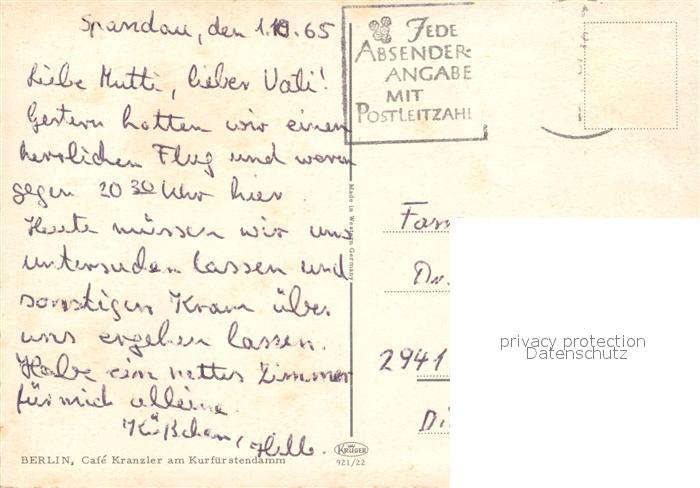 Spandau, den 1.10.65
Liebe Mutti, lieber Vati!
Gestern hatten wir einen
herrlichen Flug und waren
gegen 20 30 Uhr hier.
Heute müssen wir uns
untersuchen lassen und
sonstigen Kram über
uns ergehen lassen.
Habe ein nettes Zimmer
für mich alleine.
Küßchen,
BERLIN, Café Kranzler am Kurfürstendamm
Made in Western Germany
KRÜGER
921/22
JEDE
ABSENDER-
ANGABE
MIT
POSTLEITZAHL
Fam
Dr.
2941
privacy protection
Datenschutz